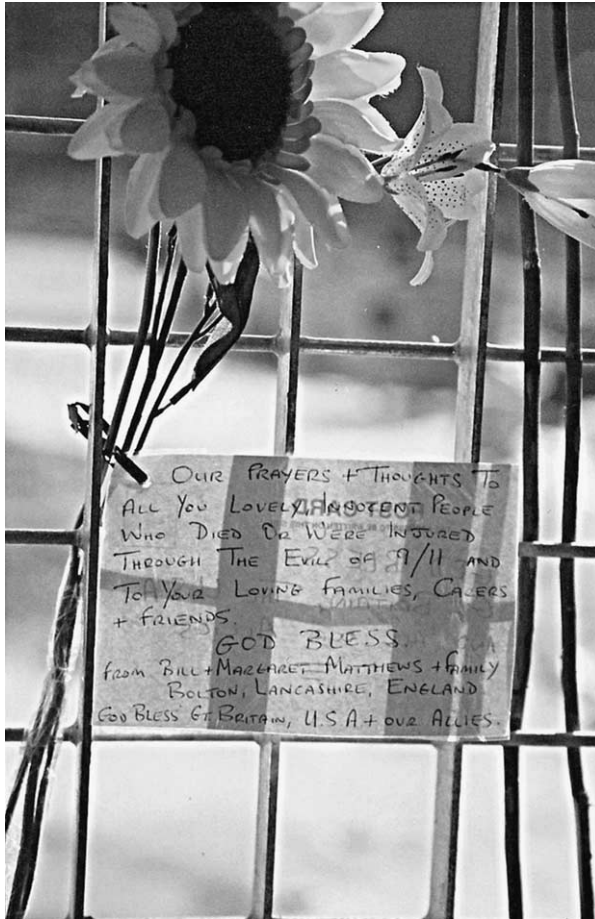 OUR PRAYERS + THOUGHTS TO
ALL YOU LOVELY, INNOCENT PEOPLE
WHO DIED OR WERE INJURED
THROUGH THE EVIL OF 9/11 AND
TO YOUR LOVING FAMILIES, CARERS
+ FRIENDS.
GOD BLESS.
FROM BILL + MARGARET MATTHEWS + FAMILY
BOLTON, LANCASHIRE, ENGLAND
GOD BLESS GT. BRITAIN, U.S.A + OUR ALLIES.